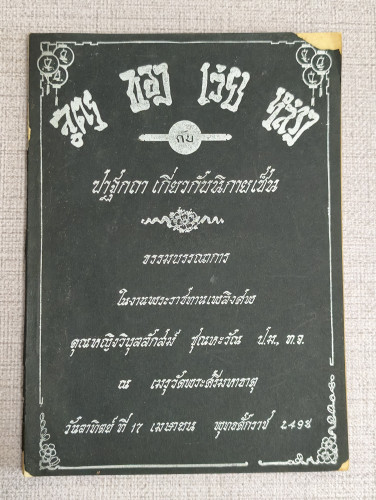 สูตร ของ เว่ย หล่าง
กับ
ปาฐกถา เกี่ยวกับนิกายเซ็น
ธรรมบรรณาการ
ในงานพระราชทานเพลิงศพ
คุณหญิงวิบุลลักสม์ ชุณหะวัณ ป.ม., ท.จ.
ณ เมรุวัดพระศรีมหาธาตุ
วันอาทิตย์ ที่ 17 เมษายน พุทธศักราช ๒๔๙๘